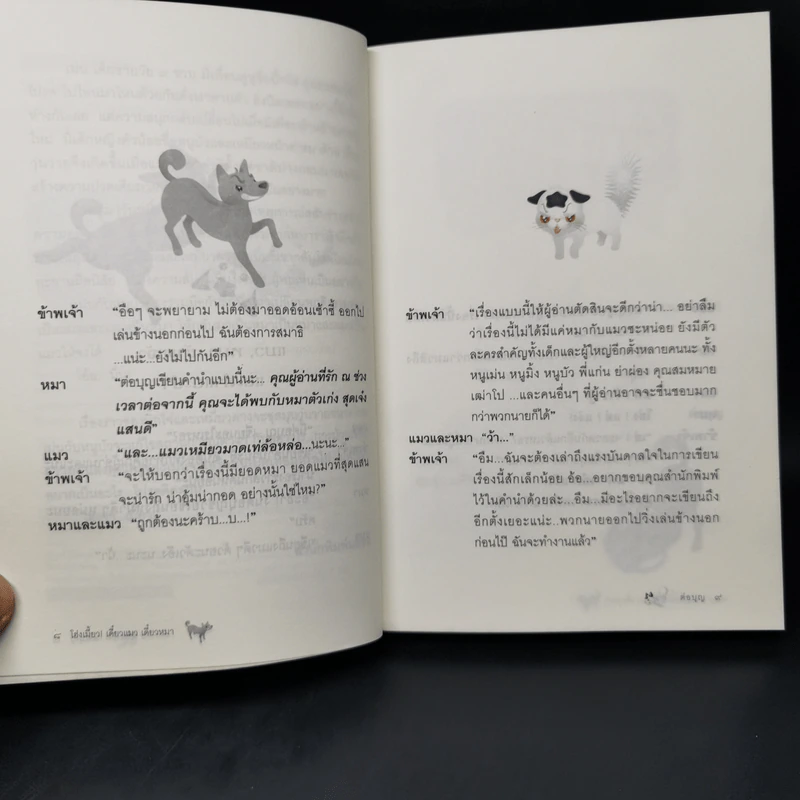 ข้าพเจ้า “ฮือๆ จะพยายาม ไม่ต้องมาออดอ้อนเซ้าซี้ ออกไป
เล่นข้างนอกก่อนไป ฉันต้องการสมาธิ
...แน่ะ...ยังไม่ไปกันอีก”
หมา “ต่อบุญเขียนคำนำแบบนี้นะ... คุณผู้อ่านที่รัก ณ ช่วง
เวลาต่อจากนี้ คุณจะได้พบกับหมาตัวเก่ง สุดเจ๋ง
แสนดี”
แมว “และ...แมวเหมียวมาดเท่ล้อหล่อ...นะนะ...”
ข้าพเจ้า “จะให้บอกว่าเรื่องนี้มียอดหมา ยอดแมวที่สุดแสน
จะน่ารัก น่าอุ้มน่ากอด อย่างนั้นใช่ไหม?”
หมาและแมว “ถูกต้องนะคร้าบ...บ...!”
๘ โฮ่งเมี้ยว! เดี๋ยวแมว เดี๋ยวหมา
ข้าพเจ้า “เรื่องแบบนี้ให้ผู้อ่านตัดสินจะดีกว่าน่า... อย่าลืม
ว่าเรื่องนี้ไม่ได้มีแค่หมากับแมวซะหน่อย ยังมีตัว
ละครสำคัญทั้งเด็กและผู้ใหญ่อีกตั้งหลายคนนะ ทั้ง
หนูเม่น หนูมิ้ง หนูบัว พี่แก่น ย่าผ่อง คุณสมหมาย
เฒ่าโป ...และคนอื่นๆ ที่ผู้อ่านอาจจะชื่นชอบมาก
กว่าพวกนายก็ได้”
แมวและหมา “ว้า...”
ข้าพเจ้า “อืม...ฉันจะต้องเล่าถึงแรงบันดาลใจในการเขียน
เรื่องนี้สักเล็กน้อย อ้อ...อยากขอบคุณสำนักพิมพ์
ไว้ในคำนำด้วยล่ะ...อืม...มีอะไรอยากจะเขียนถึง
อีกตั้งเยอะแน่ะ..พวกนายออกไปวิ่งเล่นข้างนอก
ก่อนไป๊ ฉันจะทำงานแล้ว”
ต่อบุญ ๙